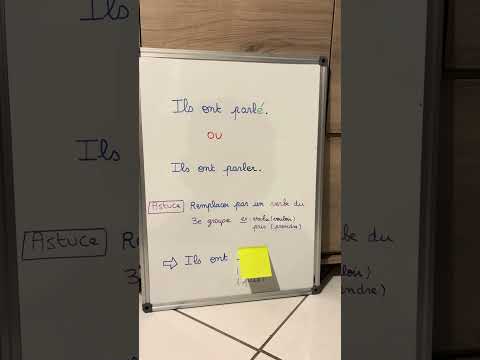 Ils ont parlé.
OU
Ils ont parler.
Astuce Remplacer par un verbe du
3e groupe ex: voulu (vouloir)
pris (prendre)
⇨ Ils ont